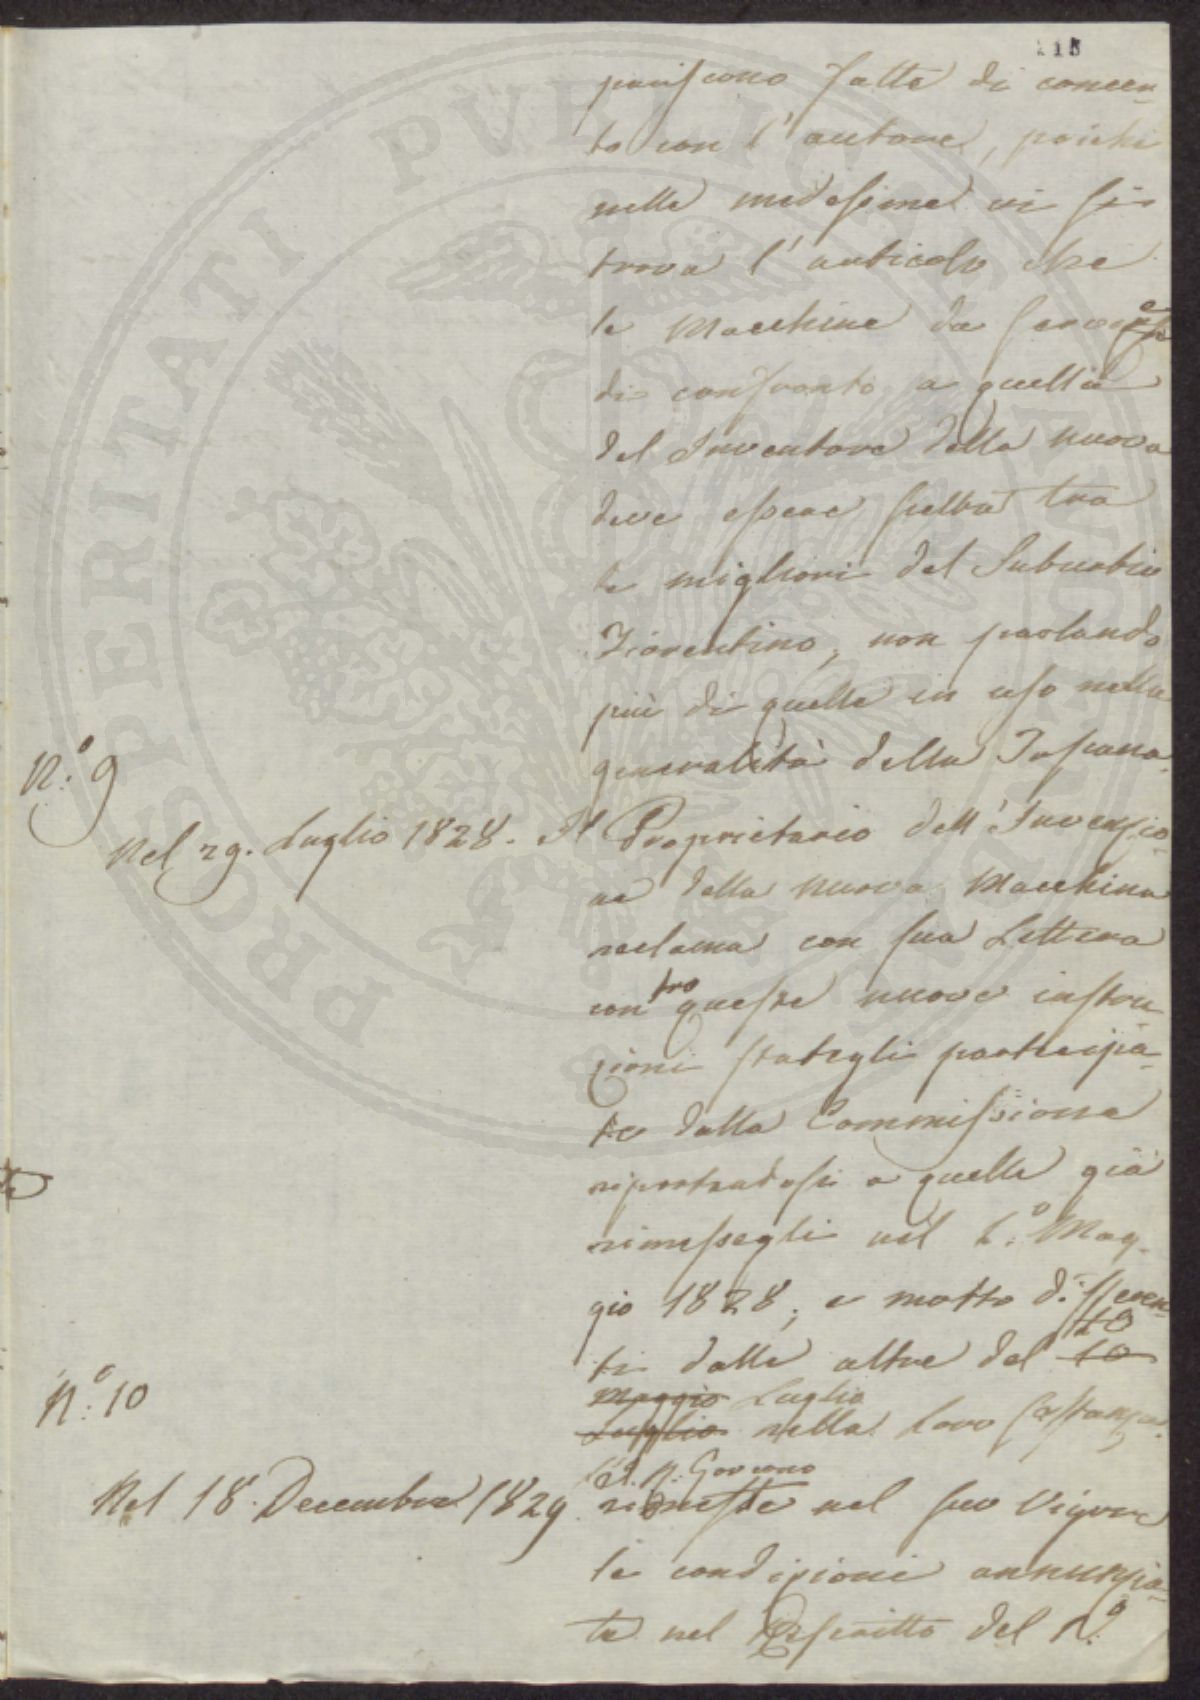 215
pariscono fatte di concer-
to con l'autore, poichè
nelle medesime vi si
trova l'articolo che
le Macchine da servire
di confronto a quella
del Inventore della nuova
deve essere scelta tra
le migliori del Suburbio
Fiorentino, non parlando
più di quelle in uso nella
generalità della Toscana.
N.º 9
Nel 29. Luglio 1828. Il Proprietario dell'Invenzio-
ne della nuova Macchina
reclama con sua Lettera
contro queste nuove instru-
zioni stategli partecipa-
te dalla Commissione
riportandosi a quelle già
rimessegli nel 1.º Mag-
gio 1828, e molto differen-
ti dalle altre del 10 10
Maggio Luglio
Luglio nella loro sostanza.
N.º 10
L'I. R. Governo
Nel 18. Decembre 1829. rimette nel suo vigore
le condizioni annunzia-
te nel Rescritto del N.º